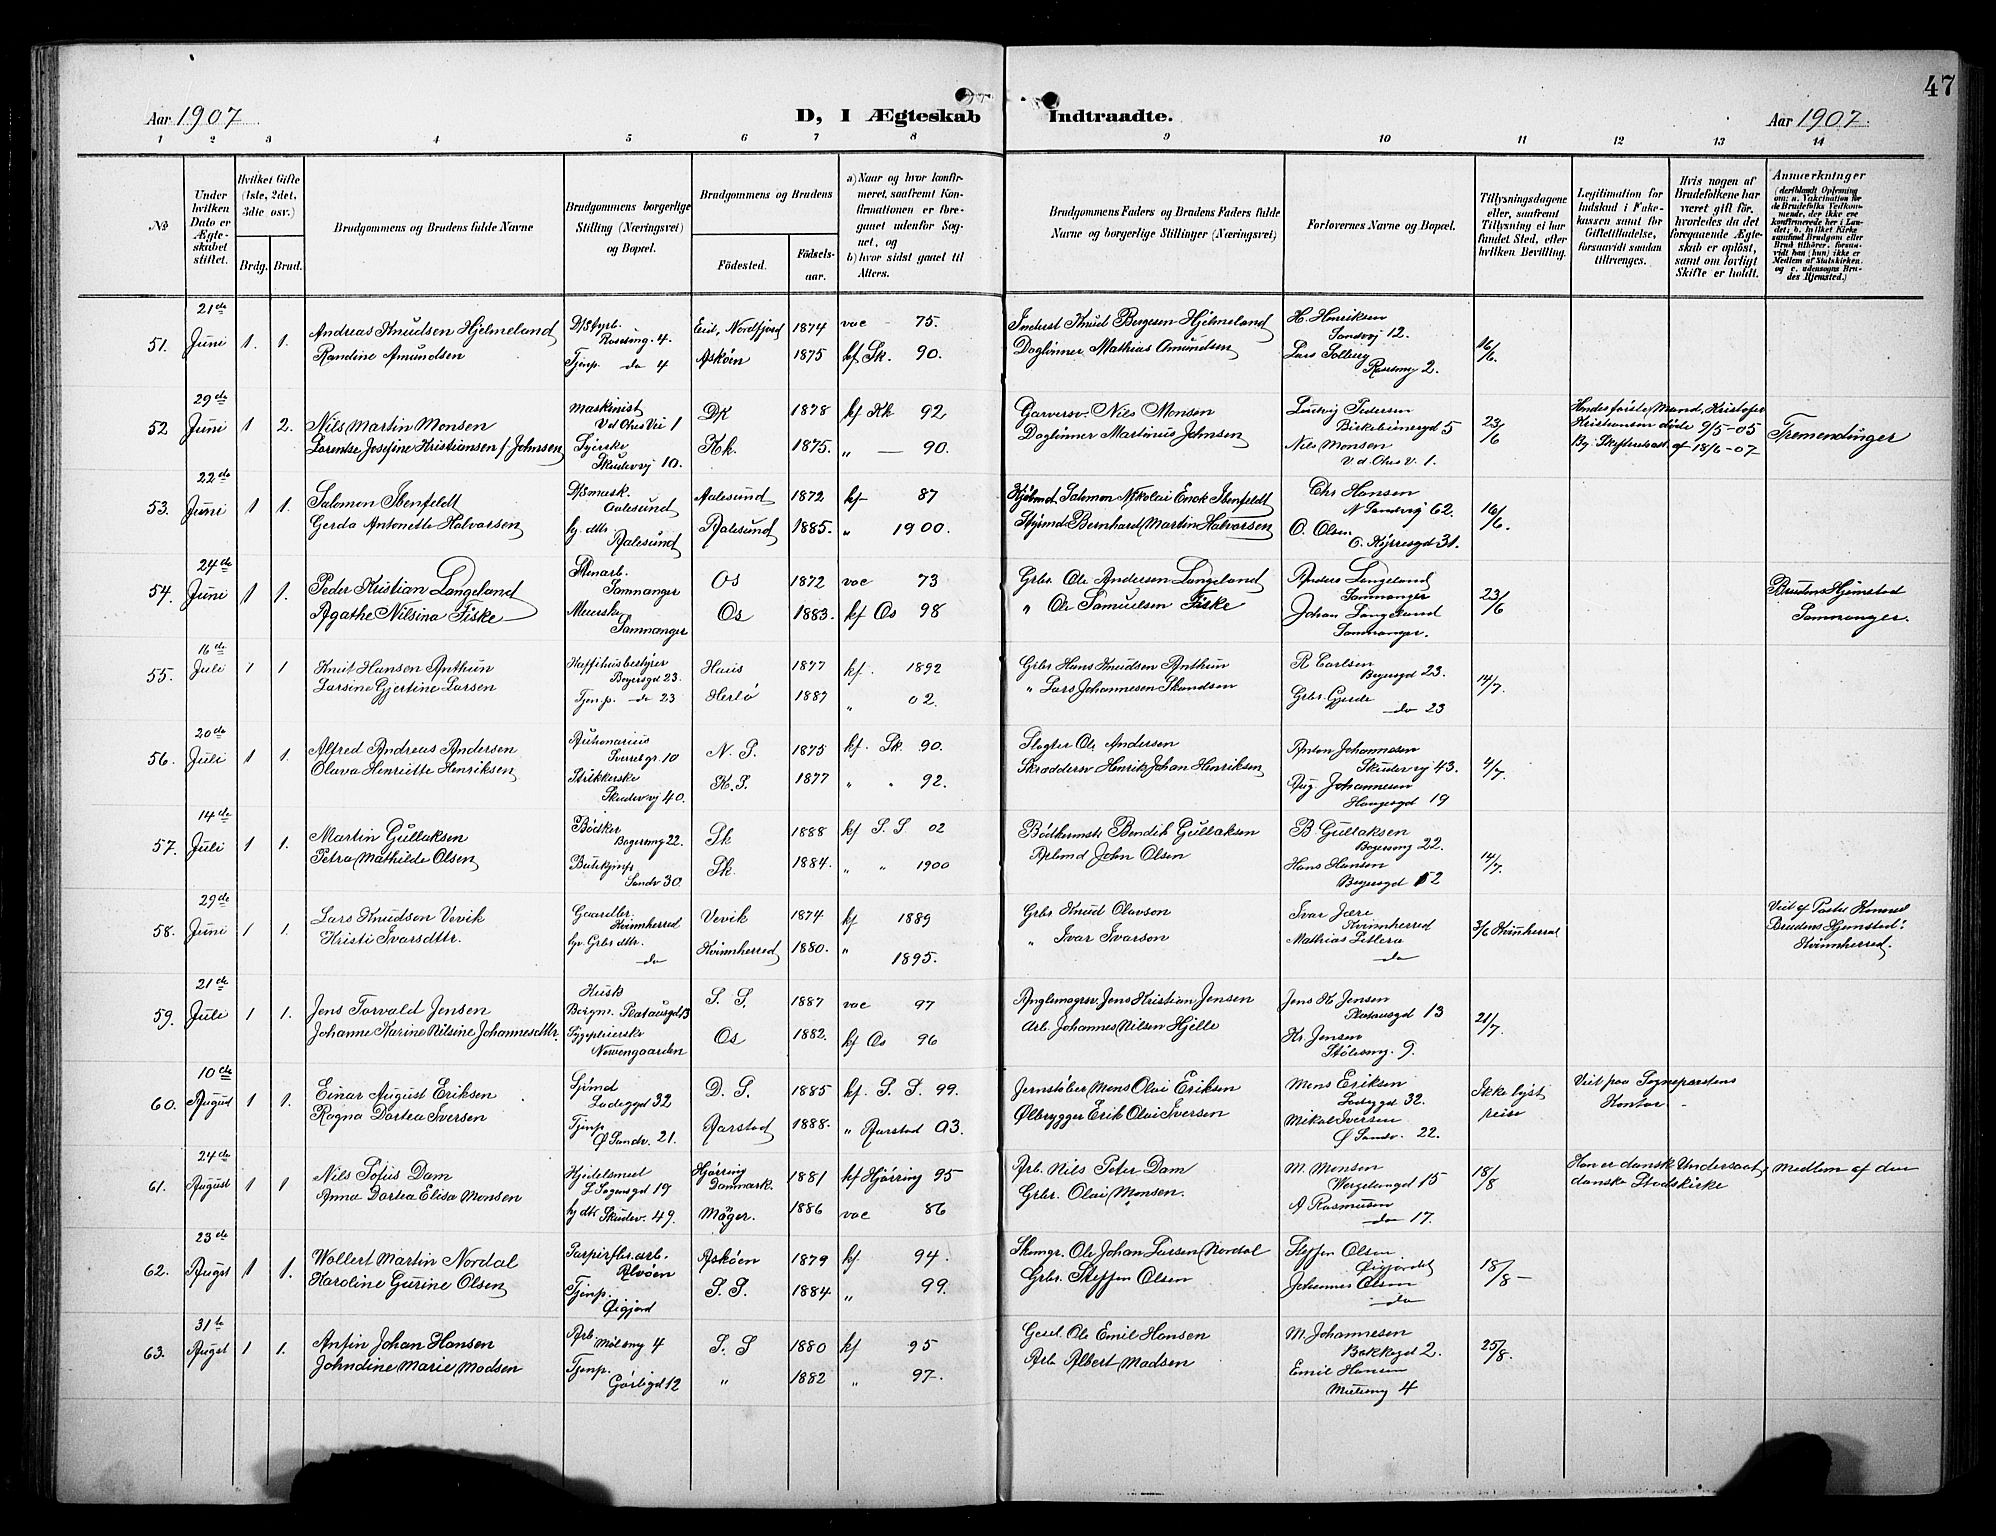 47
Aar 1907
D, I Ægteskab Indtraadte.
Aar 1907.
1 2 3 4 5 6 7 8 9 10 11 12 13 14
№
Under hvilken Dato er Ægteskabet stiftet.
Hvilket Gifte (1ste, 2det, 3die osv.)
Brdg. Brud.
Brudgommens og Brudens fulde Navne
Brudgommens borgerlige Stilling (Næringsvei) og Bopæl.
Brudgommens og Brudens
Fødested.
Fødselsaar.
a) Naar og hvor konfirmeret, saafremt Konfirmationen er foregaaet udenfor Sognet, og
b) hvor sidst gaaet til Alters.
Brudgommens Faders og Brudens Faders fulde Navne og borgerlige Stillinger (Næringsvei)
Forlovernes Navne og Bopæl.
Tillysningsdagene eller, saafremt Tillysning ei har fundet Sted, efter hvilken Bevilling.
Legitimation for Indskud i Enkekassen samt for Giftetilladelse, forsaavidt saadan tiltrænges.
Hvis nogen af Brudefolkene har været gift før, hvorledes da det foregaaende Ægteskab er opløst, samt om lovligt Skifte er holdt.
Anmærkninger
51. 21de Juni 1. 1.
Andreas Knudsen Hjelmeland
Randine Amundsen
Rosesmg. 4.
Tjenp. do 4
Eid, Nordfjord 1874 vac - 75.
Askøen 1875 kf Sk. 90.
Inderst Knud Bergesen Hjelmeland
Daglønner Mathias Amundsen
H. Henriksen
Sandvj 12.
Lars Solberg
Rosesmg 2.
16/6.
52 29de Juni 1 2.
Nils Martin Monsen
Lorentse Josefine Kristiansen f. Johnsen
Maskinist
V d Ohus Vei 1
Syerske
Skudevvj 10.
DK 1878 kf Kk 92
Kk. 1875. „ — 90.
Garversv. Nils Monsen
Dagløner Martinus Johnsen
Ludvig Pedersen
Birkebeinersgd 5
Nils Monsen
V. d. Ohus V. 1.
23/6
Hendes første Mand, Kristofer
Kristiansen døde 9/5-05
By. Skifteattest af 18/6-07
Fremendinger
53. 22de Juni 1 1.
Salomon Ibenfeldt
Gerda Antonette Halvorsen
D/Smask.
Aalesund
hj. dtr. Aalesund
Aalesund 1872 kf 87
Aalesund 1885. „ 1900.
Salomon Nikolai Enok Ibenfeldt
Styrmd Bernhard Martin Halvorsen
Chr Hansen
N Sandvij 62.
O. Olsen
O. Kyrresgd 31.
16/6.
54. 24de Juni 1 1.
Peder Kristian Langeland
Agathe Nilsina Fiske
Stenarb.
Samnanger
Samnanger
Os 1872 vac 73
Os 1883. kf Os 98
Grbr Ole Andersen Langeland
„ Ole Samuelsen Fiske
Anders Langeland
Samnanger
Johan Langeland
Samnanger.
23/6
Brudens Hjemsted
Samnanger.
55. 16de Juli 1 1
Knut Hansen Anthun
Larsine Gjertine Larsen
Kaffihusbestyrer
Bøgersgd 23.
Tjenp. do 23
Haus 1877 kf. 1892
Herlø 1887 „ 02.
Grbr Hans Knudsen Anthun
„ Lars Johannesen Skandsen
R Carlsen
Bøgersgd 23.
Grbr. Gjerde
do 23
14/7.
56. 20de Juli 1 1.
Alfred Andreas Andersen
Olava Henriette Henriksen
Auktionarius
Sverresgr. 10
Strikkerske
Skudevvj 40.
N. S. 1875 kf. Sk. 90.
K. S. 1877 „ „ 92.
Slagter Ole Andersen
Skræddersv Henrik Johan Henriksen
Anton Johannesen
Skudevvj 43.
Aug. Johannesen
Haugesgd 19
4/7.
57. 14de Juli 1 1.
Martin Gullaksen
Petra Mathilde Olsen
Bødker
Bøgersmg 22.
Sandv 30.
Sk 1888 kf S. S. 02
Sk. 1884. „ „ 1900
Bødkermstr Bendik Gullaksen
Arbmd John Olsen
B. Gullaksen
Bøgersmg 22.
Hans Hansen
Bøgersgd 52
14/7.
58. 29de Juni 1 1.
Lars Knudsen Vevik
Kristi Ivarsdttr.
Gaardbr.
Kvinnherred
do
Vevik 1874 kf 1889
Kvinnherred 1880. „ 1895.
Grbr Knud Olavson
„ Ivar Ivarson
Ivar Jære
Kvinnherred
Mathias
do
3/6 Kvinherred
Viet af Pastor
Brudens Hjemsted:
Kvinnherred.
59. 21de Juli 1 1.
Jens Torvald Jensen
Johanne Karine Nilsine Johannesdttr.
Kusk
Sygepleiersk
Nevengaarden
S. S. 1887 vac 97
Os 1882. kf Os 96
Jens Kristian Jensen
Arb. Johannes Nilsen Hjelle
Jens K. Jensen
13
Kr. Jensen
Stølesmg. 9.
21/7.
60. 10de August 1 1.
Einar August Eriksen
Ragna Dortea Iversen
Sjømd
Ladeggd 32
Tjenp
Ø Sandv. 21.
D. S. 1885 kf. S. S. 99.
Aarstad 1888. „ Aarstad 03.
Jernstøber Mons Olai Eriksen
Ølbrygger Erik Olai Iversen
Mons Eriksen
Ladeggd 32.
Mikal Iversen
Ø Sandv. 22.
Ikke lyst
reise
Viet paa Sogneprestens
Kontor -
61. 24de August 1 1
Nils Sofus Dam
Anna Dortea Elisa Monsen
Kjedelsmed
19
hj dtr Skudev. 49.
Hjørring Danmark. 1881 kf Hjørring 95
Møger. 1886 vac 86
Arb. Nils Peter Dam
Grbr. Olai Monsen.
M. Monsen
Wergelandgd 15
A Rasmussen
do 17.
18/8
Han er dansk Undersaat, medlem af den
danske Statskirke
62. 23de Augst 1 1.
Wollert Martin Nordal
Karoline Gurine Olsen
Papirfbr. arb.
Alvøen
Tjenp.
Øigjord
Askøen 1879 kf 94.
S. S. 1884 „ 99.
Ole Johan Larsen Nordal
Grbr. Steffen Olsen
Steffen Olsen
Øigjordet
Johannes Olsen
do
18/8-
63. 31te Augst 1 1.
Antin Johan Hansen
Johndine Marie Madsen
Arb.
Mølesmg 4
Tjenp.
Gørbigd 12
S. S 1880 kf 95
„ 1882 „ 97.
Gesel. Ole Emil Hansen
Arb Albert Madsen
M. Johannesen
Bakkegd 2.
Emil Hansen
4
25/8.